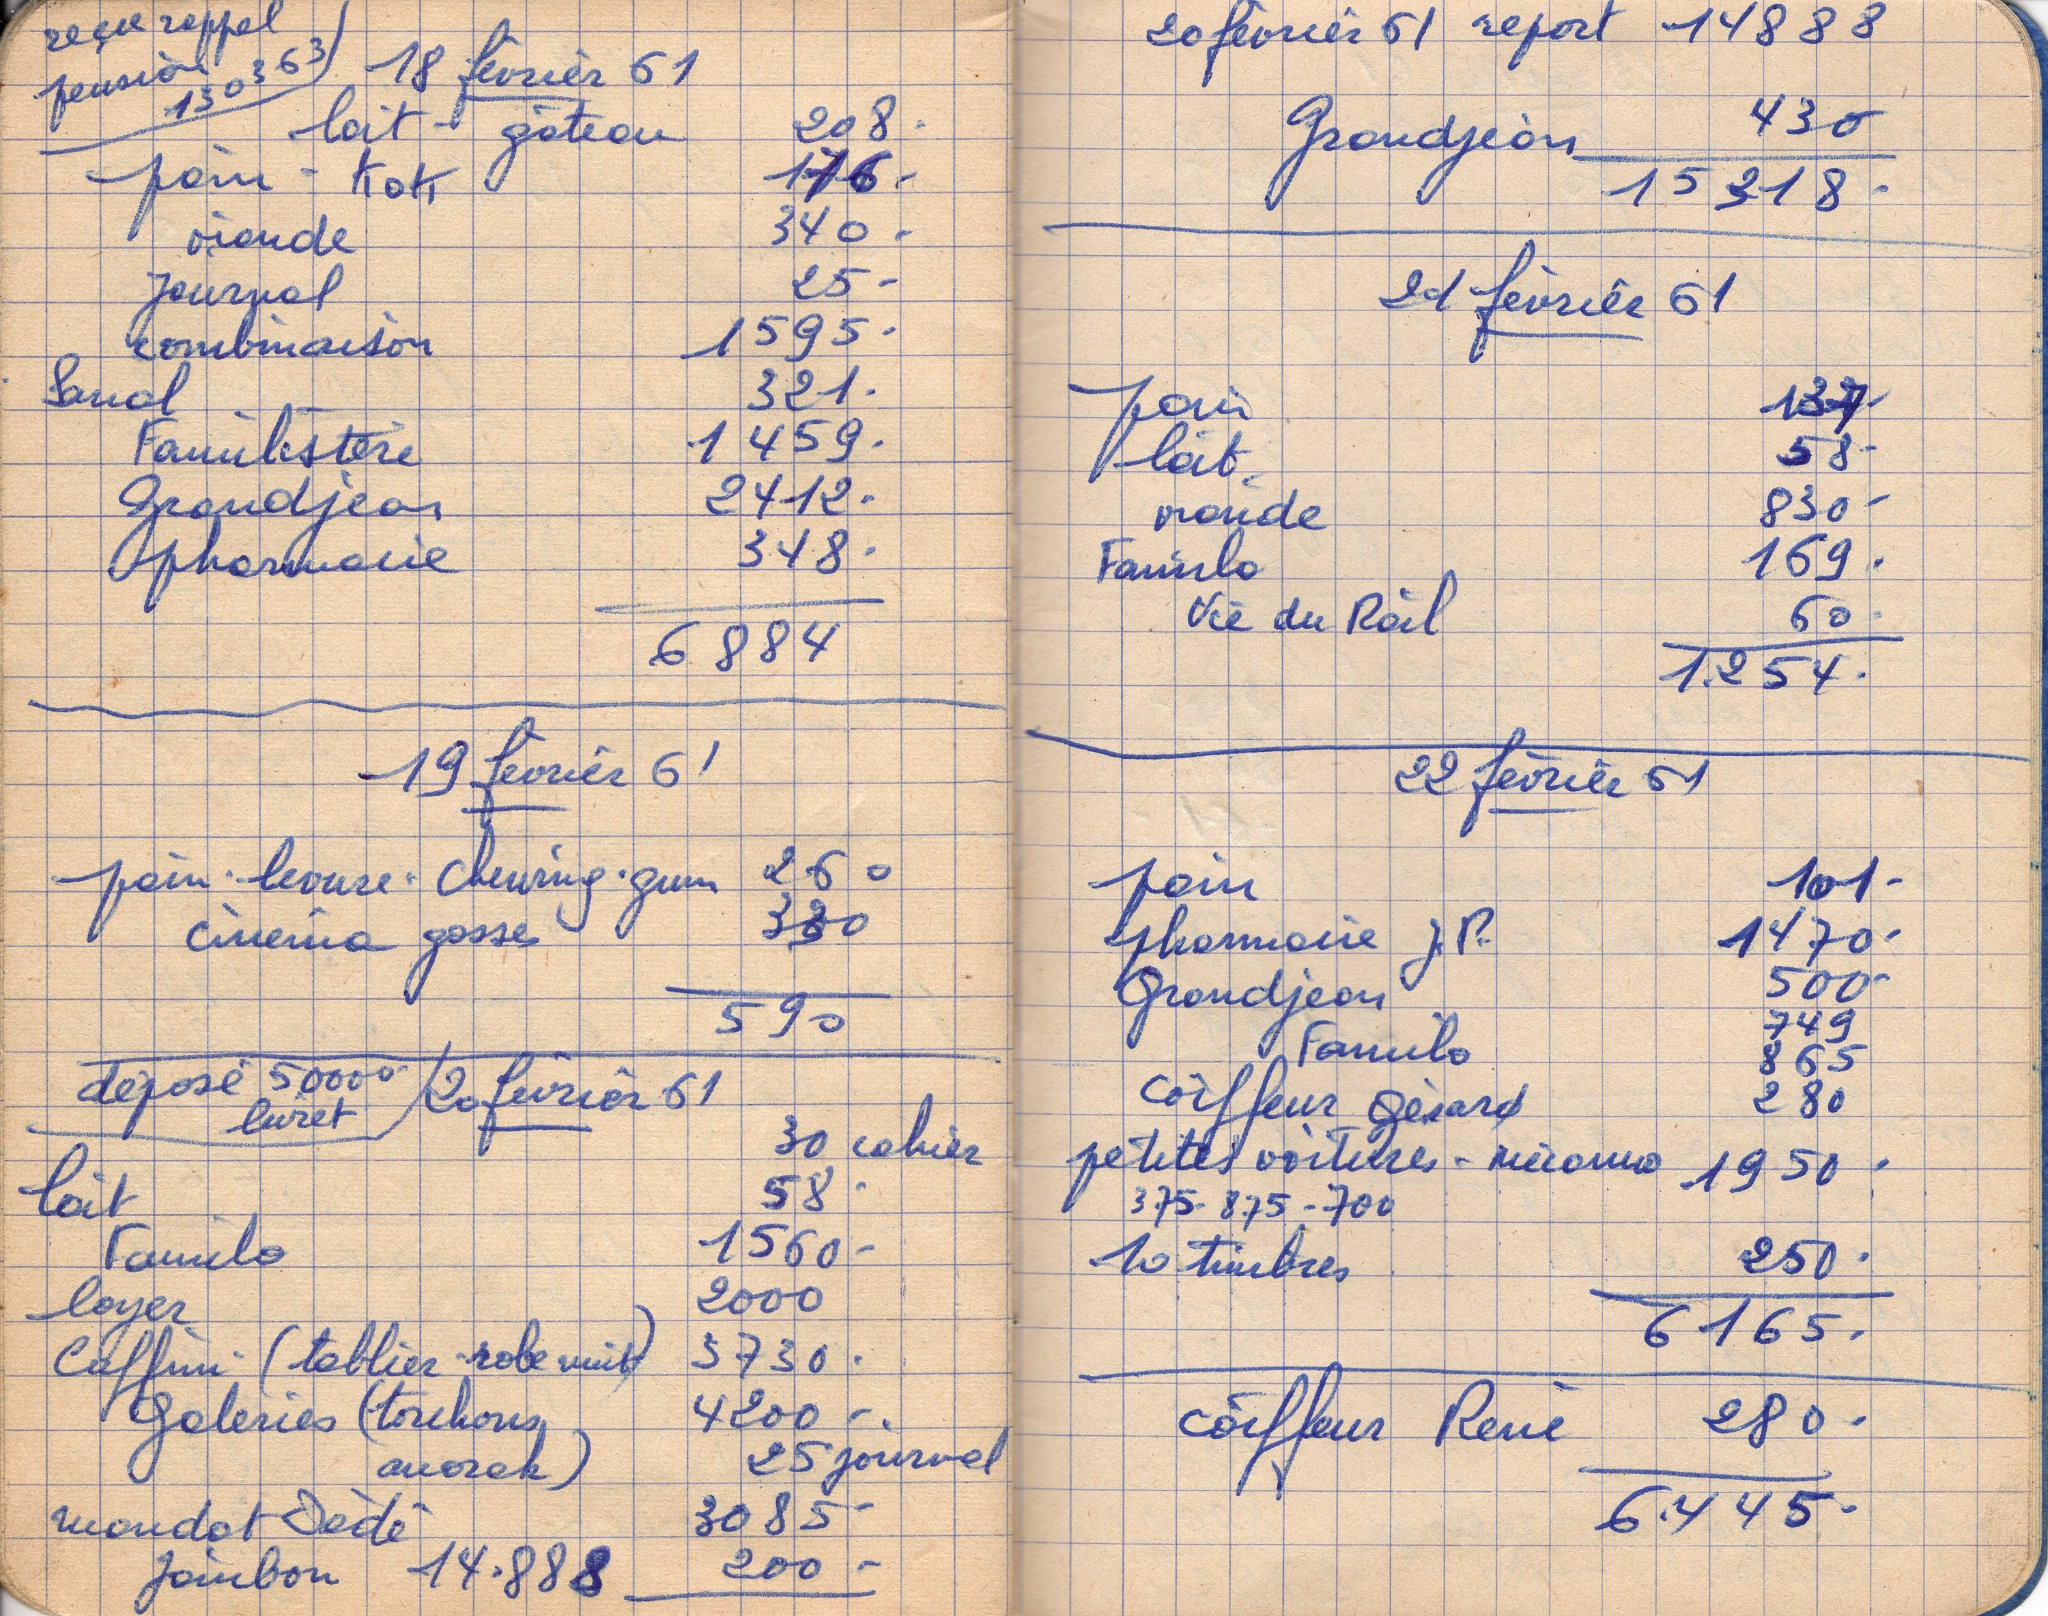 reçu rappel
pension
130363
18 février 61
lait - gâteau 208.
pain - Kok 176.
viande 340.
Journal 25-
combinaison 1595.
Sanal 321.
Familistère 1459.
Grandjean 2412.
pharmacie 348.
6884
19 février 61
pain. levure. chewing-gum 260
cinéma gosses 330
590
déposé 50000
livret
20 février 61
30 cahier
lait 58.
Familo 1560-
loyer 2000
Caffin. (tablier robe nuit) 3730.
Galeries (torchons 4200-.
anorak) 25 journal
mandat Dédé 3085-
Jambon 14.888 200-
20 février 61 report 14888
Grandjean 430
15318.
21 février 61
pain 137-
lait. 58-
viande 830-
Familo 169.
Vie du Rail 60.
1.254.
22 février 61
pain 101-
pharmacie J.P. 1470.
Grandjean 500-
749
Familo 865
coiffeur Gérard 280
petites voitures - mécano 1950.
375- 875 - 700
10 timbres 250.
6165.
coiffeur René 280.
6.445.